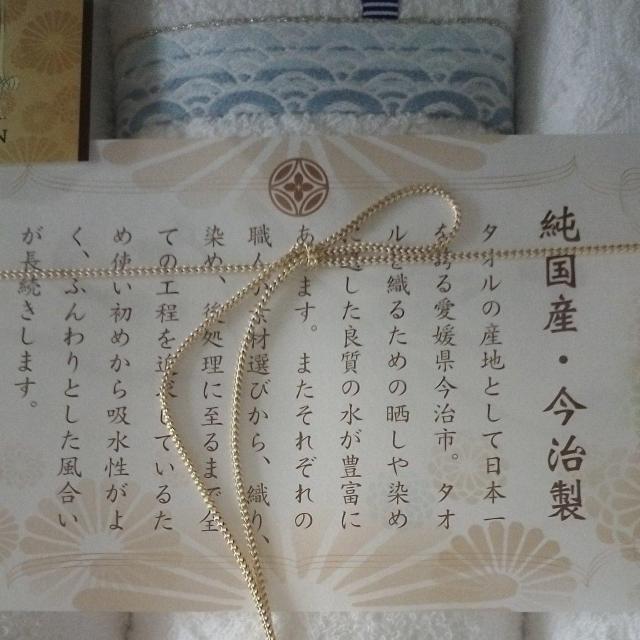 純国産・今治製
タオルの産地として日本一
を誇る愛媛県今治市。タオ
ルを織るための晒しや染め
に適した良質の水が豊富に
あります。またそれぞれの
職人が素材選びから、織り、
染め、後処理に至るまで全
ての工程を追求しているた
め使い初めから吸水性がよ
く、ふんわりとした風合い
が長続きします。